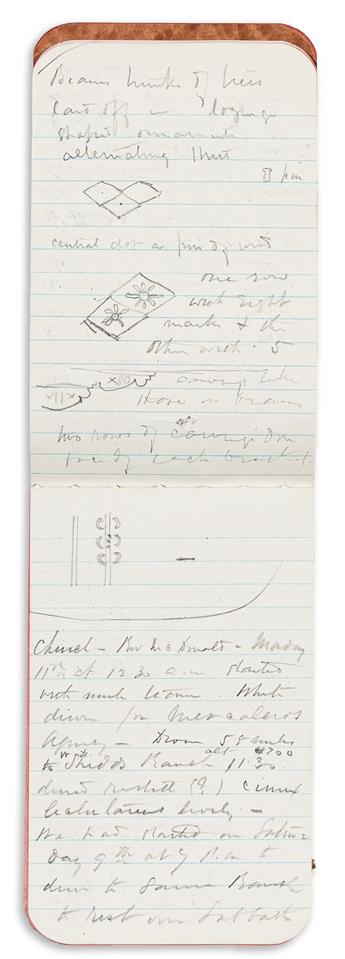 Beams trunks of trees
laid off in lozenge
shaped ornaments
alternating thus
8 pin
central dot a pin of wood
one row
with Eight
marks & the
other with 5
carvings like
those on beams
two rows of carvings on
face of each bracket
Church – Rev McDonald – Monday
11th at 12 30 a.m. started
with much
driven for Mescaleros
Agency – Drove 58 miles
to Shedd's Ranch alt 4700 11.30

We had started on Satur=
day 9th at 7 P.m. to
drive to same Ranch
to rest over Sabbath